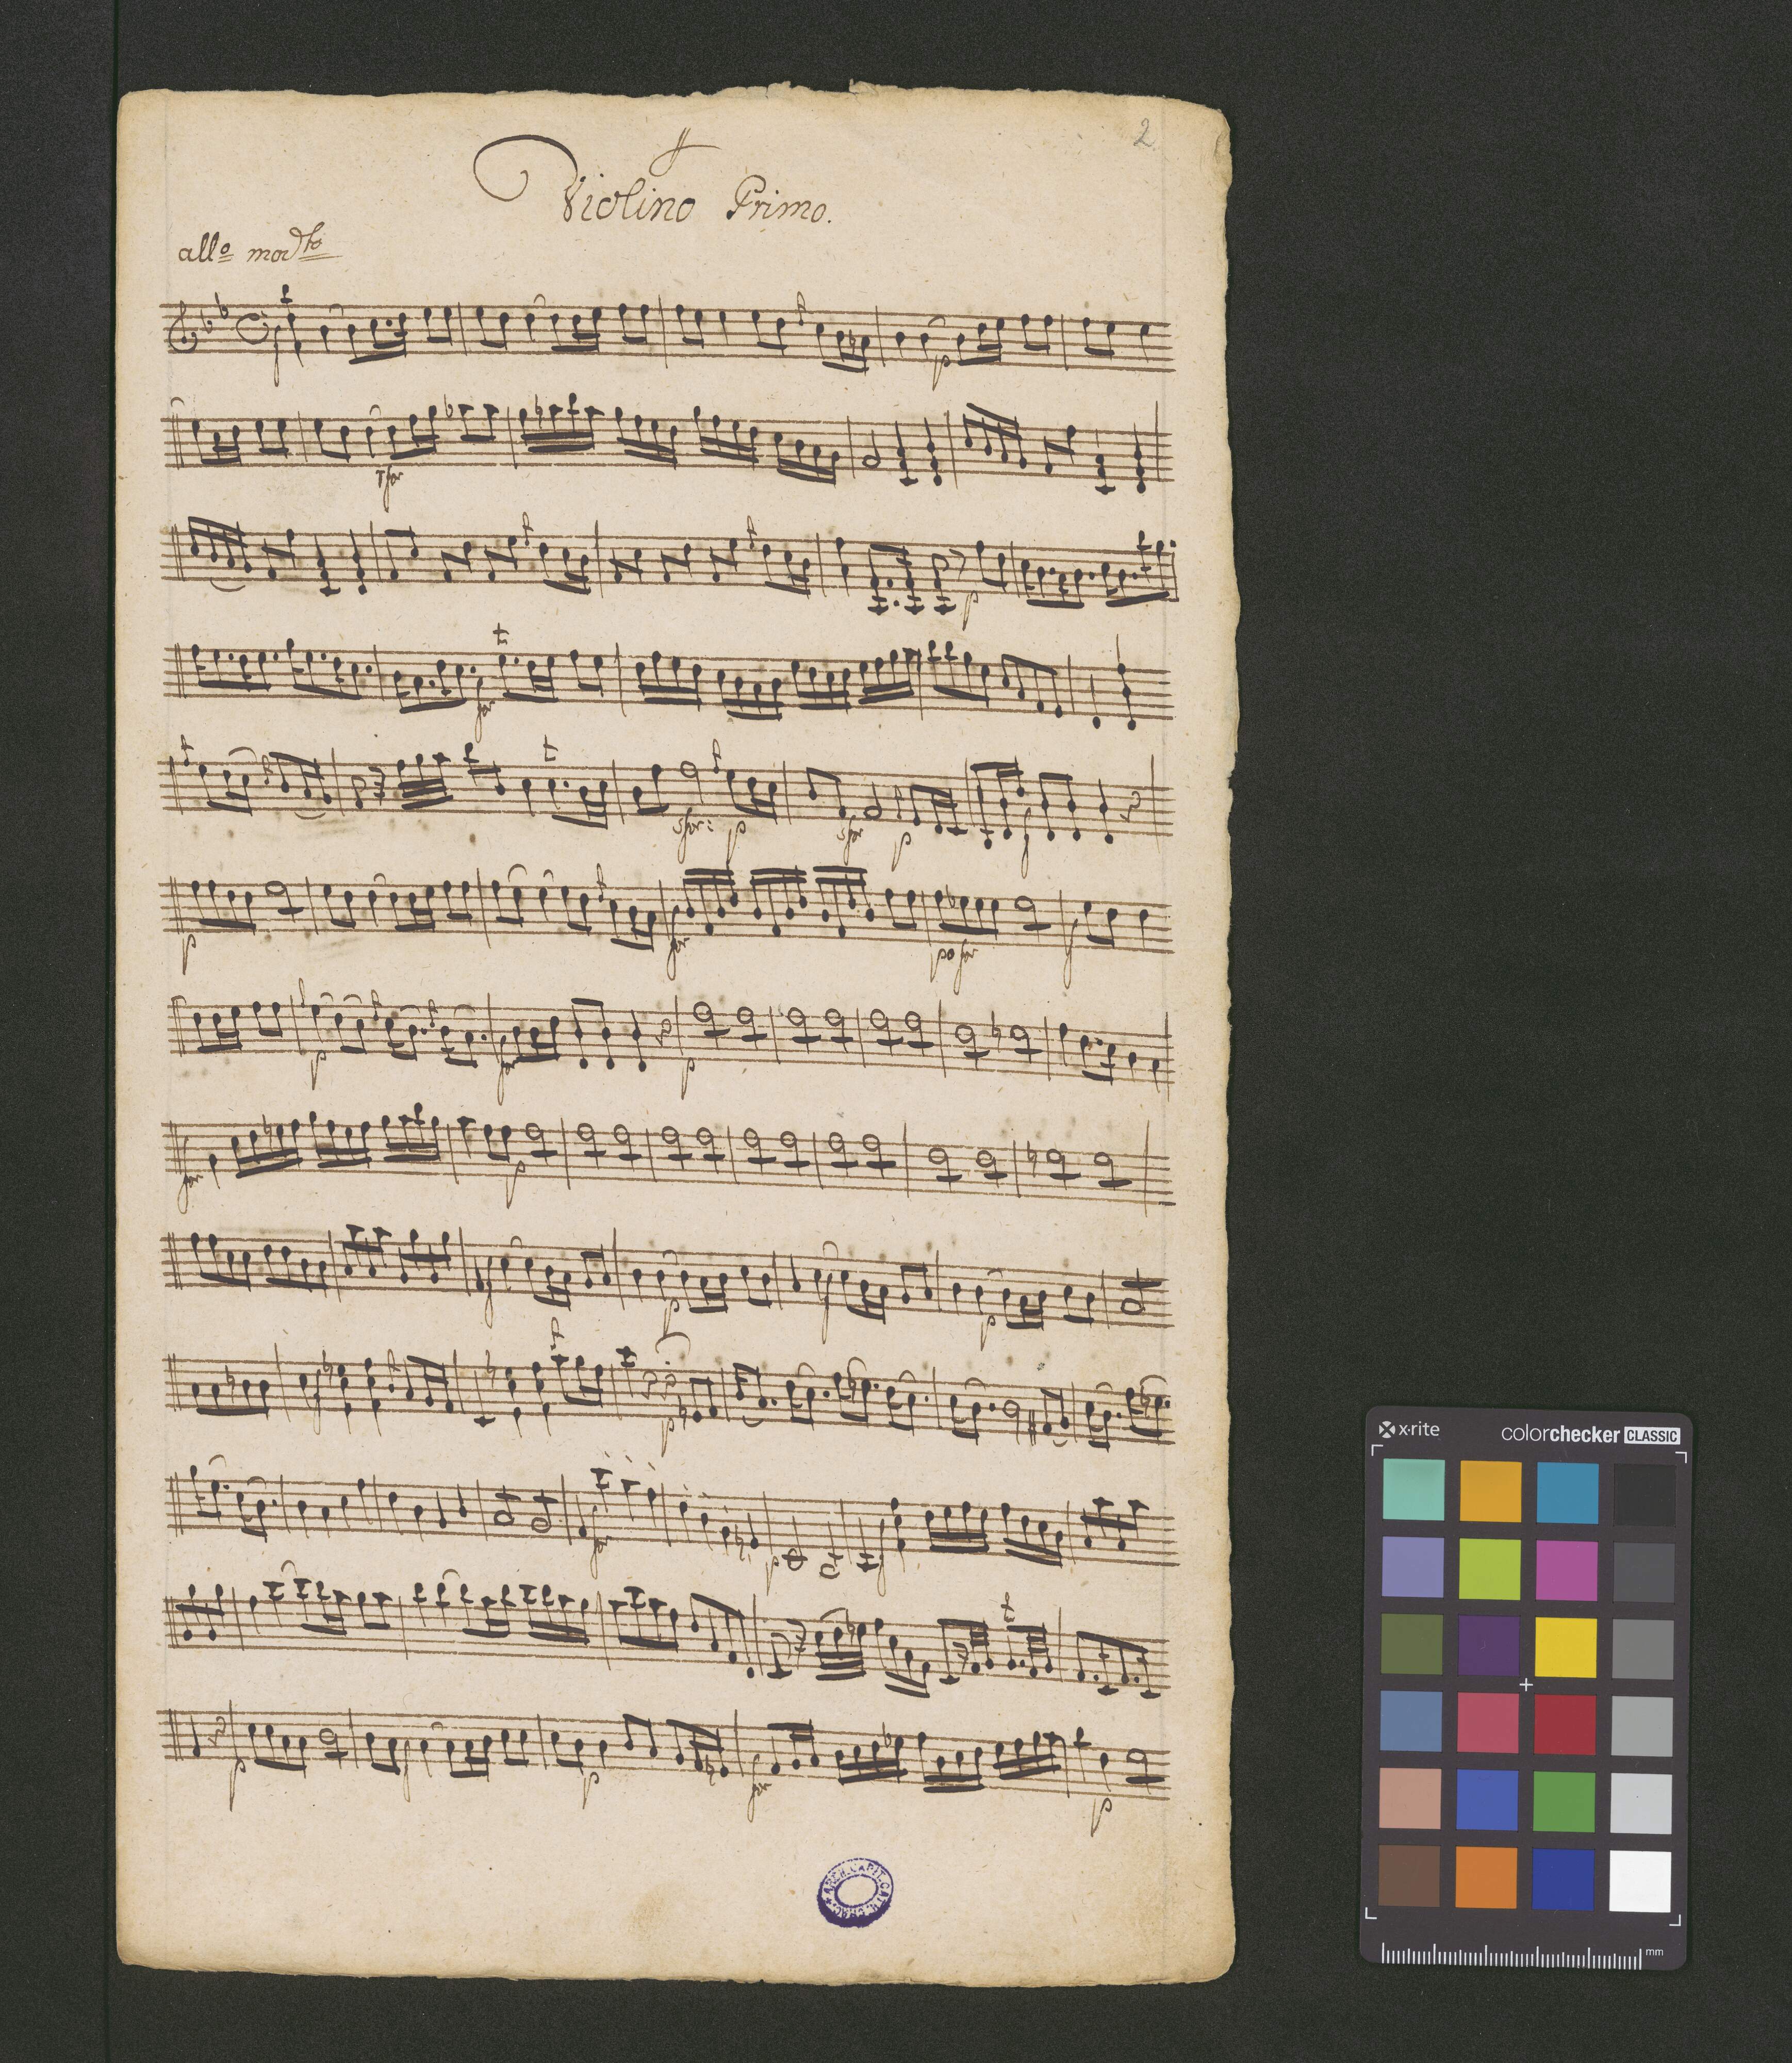 2
Violino Primo.
allo modto
f
p
sfor
p
for
sfor: p sfor p f
p for po for f
p for p
for p
f p f p
f p
for p f
p f p for p
ARCH. CAPIT.
x-rite
colorchecker CLASSIC
mm